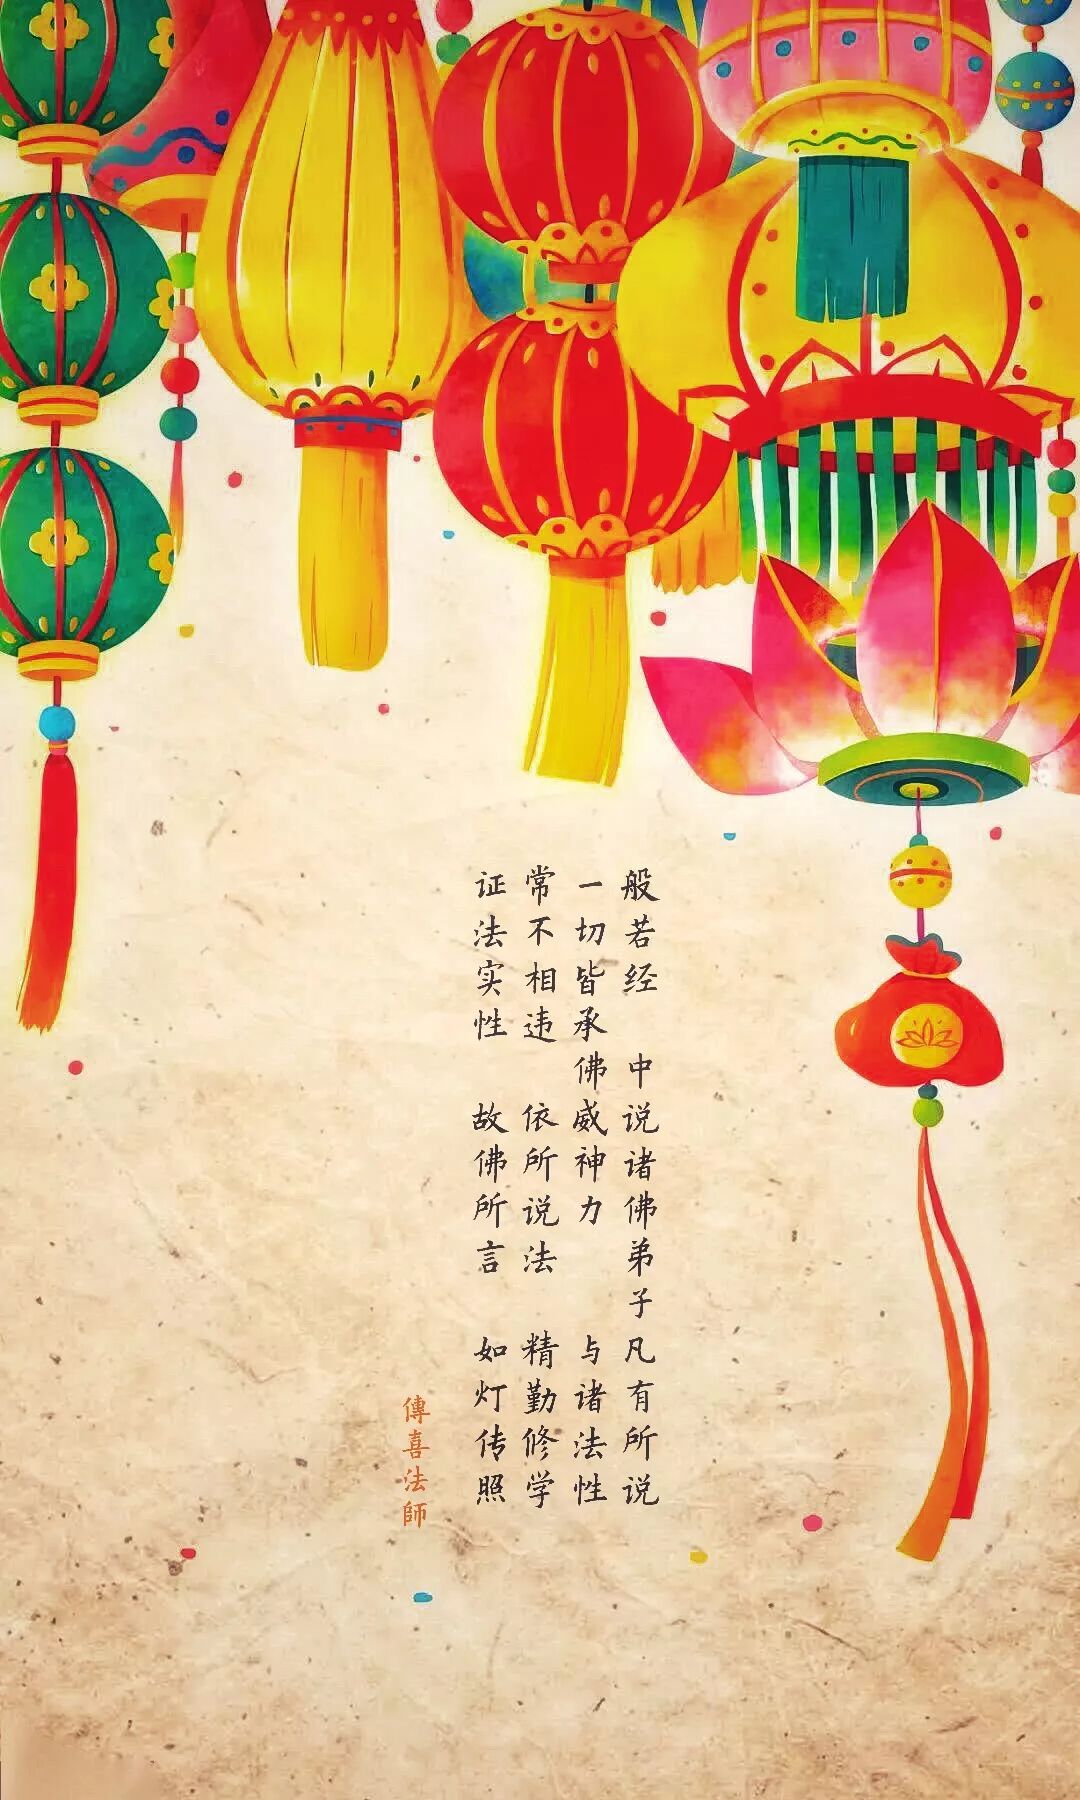 般若经 中说诸佛弟子凡有所说
一切皆承佛威神力 与诸法性
常不相违 依所说法 精勤修学
证法实性 故佛所言 如灯传照
傳喜法師